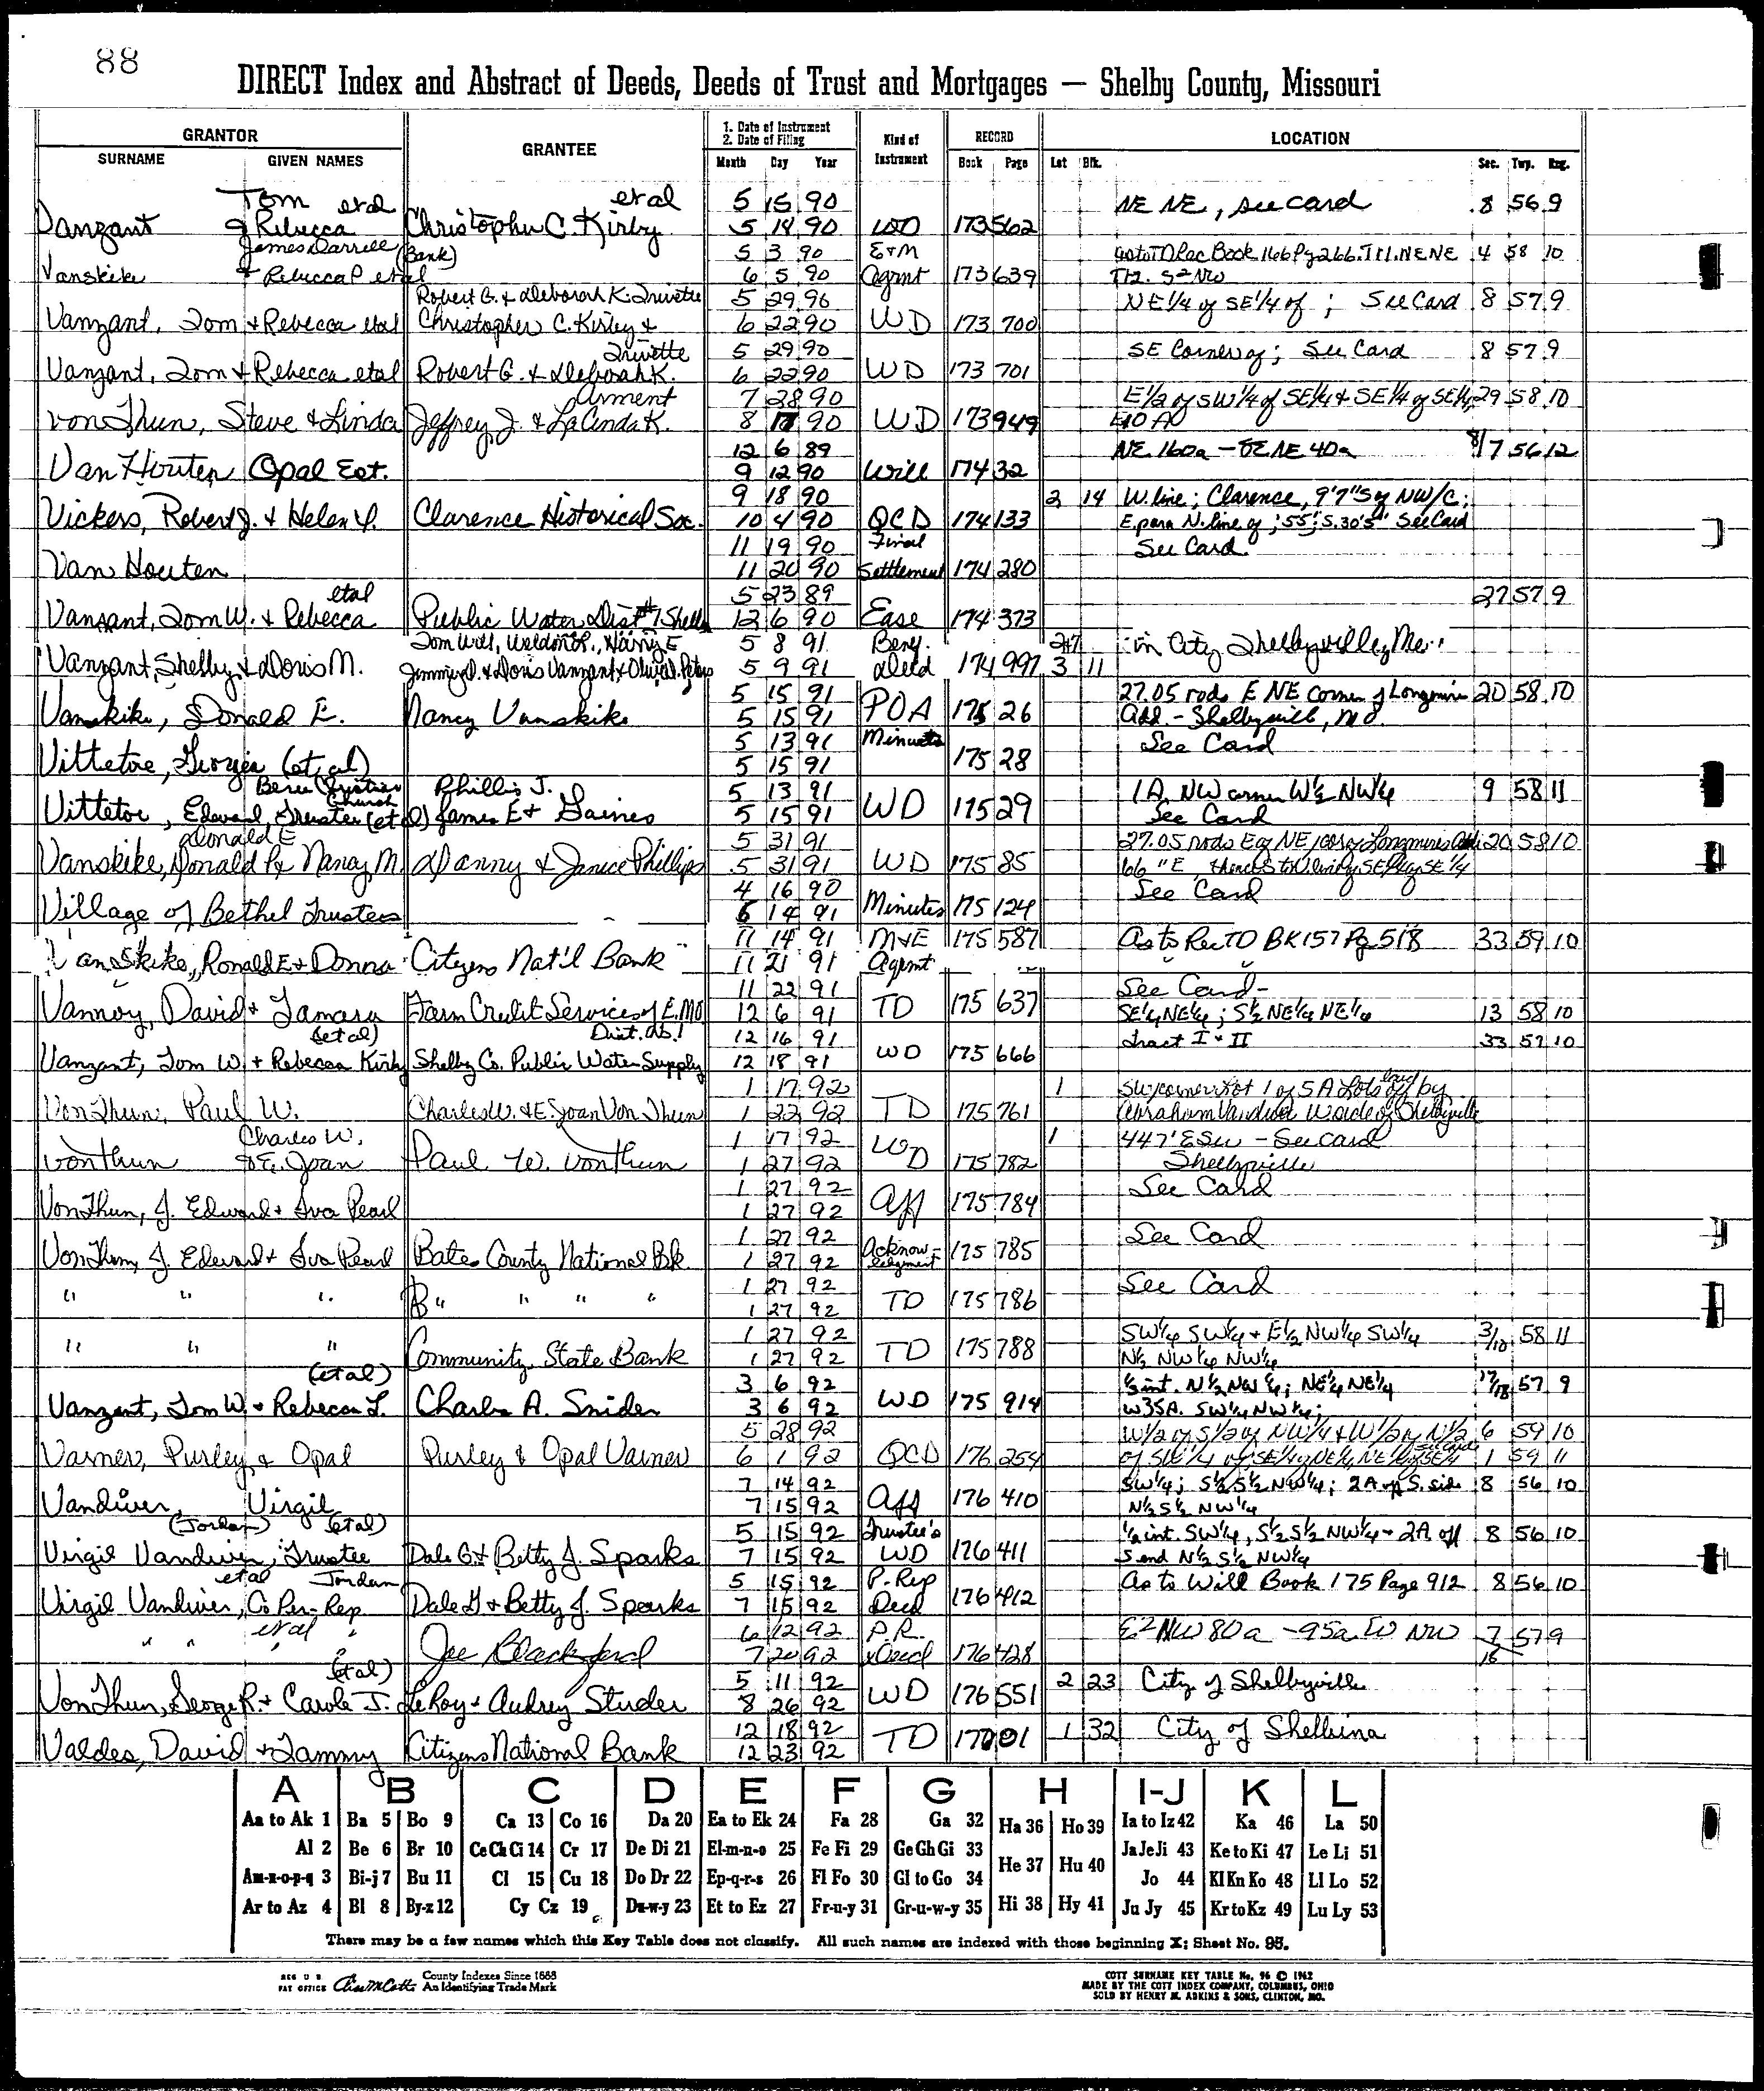 88
DIRECT Index and Abstract of Deeds, Deeds of Trust and Mortgages — Shelby County, Missouri
GRANTOR GRANTEE 1. Date of Instrument 2. Date of Filing Kind of Instrument RECORD LOCATION
SURNAME GIVEN NAMES Month Day Year Book Page Lot Blk. Sec. Twp. Rng.
Tom etal etal 5 15 90 NE NE, see card 8 56 9
Vanzant & Rebecca Christopher C. Kirby 5 18 90 WD 173 562
James Darrell (Bank) 5 3 90 E+M as to TD Rec Book 166 Pg 266. Trl. NENE 4 58 10
Vanskike + Rebecca P etal 6 5 90 Agmt 173 639
Robert G. & Deborah K. Trivette 5 29 90 NE 1/4 of SE 1/4 of ; See Card 8 57 9
Vanzant, Tom + Rebecca etal Christopher C. Kirby + 6 22 90 WD 173 700
Trivette 5 29 90 SE Corner of; See Card 8 57 9
Vanzant, Tom + Rebecca etal Robert G. & Deborah K. 6 22 90 WD 173 701
Arment 7 28 90 E 1/2 of SW 1/4 of SE 1/4 + SE 1/4 of SE 1/4 29 58 10
vonThun, Steve & Linda Jeffrey J. & LaCinda K. 8 17 90 WD 173 949 E10 A
12 6 89 NE 160a - SE NE 40a 8/7 56 12
Van Houten Opal Est. 9 12 90 Will 174 32
9 18 90 2 14 W. line; Clarence, 9'7" S of NW/C;
Vickers, Robert J. + Helen Y. Clarence Historical Soc. 10 4 90 QCD 174 133 E. para N. line of; 55'; S. 30'5" See Card
11 19 90 Final See Card
Van Houten 11 20 90 Settlement 174 280
etal 5 23 89 27 57 9
Vanzant, Tom W. + Rebecca Public Water Dist #1 Shelby 12 6 90 Ease 174 373
Tom Will, Weldon R., Harry E 5 8 91 Beny. in City Shelbyville, Mo.
Vanzant, Shelby + Doris M. Jimmy D. + Doris Vanzant + 5 9 91 Deed 174 997 3 11
5 15 91 27.05 rods E NE corner of Longmire 20 58 10
Vanskike, Donald E. Nancy Vanskike 5 15 91 POA 175 26 Add. - Shelbyville, Mo.
5 13 91 Minutes See Card
Vittetoe, Georgia (et al) 5 15 91 175 28
Berea Christian Church Phillis J. 5 13 91 1A NW corner W 1/2 NW 1/4 9 58 11
Vittetoe, Edward, Trustee (et al) James E + Gaines 5 15 91 WD 175 29 See Card
Donald E 5 31 91 27.05 rods E of NE/cor of Longmires Add 20 58 10
Vanskike, Donald R + Nancy M. Danny & Janice Phillips 5 31 91 WD 175 85
4 16 90 See Card
Village of Bethel Trustees 6 14 91 Minutes 175 124
11 14 91 M+E 175 587 As to Rec TD BK 157 Pg 518 33 59 10
VanSkike, Ronald E + Donna Citizens Nat'l Bank 11 21 91 Agmt
11 22 91 See Card -
Vannoy, David + Tamara Farm Credit Services of E. MO 12 6 91 TD 175 637 SE 1/4 NE 1/4; S 1/2 NE 1/4 NE 1/4 13 58 10
(et al) Dist. No. 1 12 16 91 Tract I + II 33 57 10
Vanzant, Tom W. + Rebecca Kirby Shelby Co. Public Water Supply 12 18 91 WD 175 666
1 17 92 1 SW/corner Lot 1 of 5 A Lots laid off by
VonThun, Paul W. Charles W. + E. Joan VonThun 1 22 92 TD 175 761 Abraham Vandiver W side of Shelbyville
Charles W. 1 17 92 1 447' E SW - See card
vonThun + E. Joan Paul W. vonThun 1 27 92 WD 175 782 Shelbyville
1 27 92 See Card
VonThun, J. Edward + Iva Pearl 1 27 92 Aff 175 784
1 27 92 See Card
VonThun, J. Edward + Iva Pearl Bates County National Bk. 1 27 92 Acknowledgment 175 785
1 27 92 See Card
" " " B" " " " 1 27 92 TD 175 786
1 27 92 SW 1/4 SW 1/4 + E 1/2 NW 1/4 SW 1/4 3/10 58 11
" " " Community State Bank 1 27 92 TD 175 788 N 1/2 NW 1/4 NW 1/4
(et al) 3 6 92 1/2 int. N 1/2 NW 1/4; NE 1/4 NE 1/4 17/18 57 9
Vanzant, Tom W. + Rebecca L. Charles A. Snider 3 6 92 WD 175 914 W35A. SW 1/4 NW 1/4;
5 28 92 W 1/2 of S 1/2 of NW 1/4 + W 1/2 of N 1/2 6 59 10
Varner, Purley & Opal Purley & Opal Varner 6 1 92 QCD 176 254 of SW 1/4 1 59 11
7 14 92 SW 1/4; S 1/2 S 1/2 NW 1/4; 2A off S. side 8 56 10
Vandiver, Virgil 7 15 92 Aff 176 410 N 1/2 S 1/2 NW 1/4
(Jordan) (et al) 5 15 92 Trustee's 1/2 int. SW 1/4, S 1/2 S 1/2 NW 1/4 - 2A off 8 56 10
Virgil Vandiver, Trustee Dale G. + Betty J. Sparks 7 15 92 WD 176 411 S end N 1/2 S 1/2 NW 1/4
etal Jordan 5 15 92 P. Rep As to Will Book 175 Page 912 8 56 10
Virgil Vandiver, Co Per-Rep Dale G + Betty J. Sparks 7 15 92 Deed 176 412
" " etal " 6 12 92 P.R. E2 NW 80a - 95a W NW 7 57 9
Joe Blackford 7 20 92 Deed 176 428 16
(et al) 5 11 92 2 23 City of Shelbyville
VonThun, George R. + Carole J. LeRoy + Audrey Studer 8 26 92 WD 176 551
12 18 92 1 32 City of Shelbina
Valdes, David + Tammy Citizens National Bank 12 23 92 TD
A B C D E F G H I-J K L
Aa to Ak 1 Ba 5 Bo 9 Ca 13 Co 16 Da 20 Ea to Ek 24 Fa 28 Ga 32 Ha 36 Ho 39 Ia to Iz 42 Ka 46 La 50
Al 2 Be 6 Br 10 Ce Ch Ci 14 Cr 17 De Di 21 El-m-n-o 25 Fe Fi 29 Ge Gh Gi 33 He 37 Hu 40 Ja Je Ji 43 Ke to Ki 47 Le Li 51
Am-n-o-p-q 3 Bi-j 7 Bu 11 Cl 15 Cu 18 Do Dr 22 Ep-q-r-s 26 Fl Fo 30 Gl to Go 34 Jo 44 Kl Kn Ko 48 Ll Lo 52
Ar to Az 4 Bl 8 By-z 12 Cy Cz 19 Du-w-y 23 Et to Ez 27 Fr-u-y 31 Gr-u-w-y 35 Hi 38 Hy 41 Ju Jy 45 Kr to Kz 49 Lu Ly 53
There may be a few names which this Key Table does not classify. All such names are indexed with those beginning X; Sheet No. 95.
REG U S PAT OFFICE County Indexes Since 1888 An Identifying Trade Mark
COTT SURNAME KEY TABLE No. 96 © 1962
MADE BY THE COTT INDEX COMPANY, COLUMBUS, OHIO
SOLD BY HENRY M. ADKINS & SONS, CLINTON, MO.